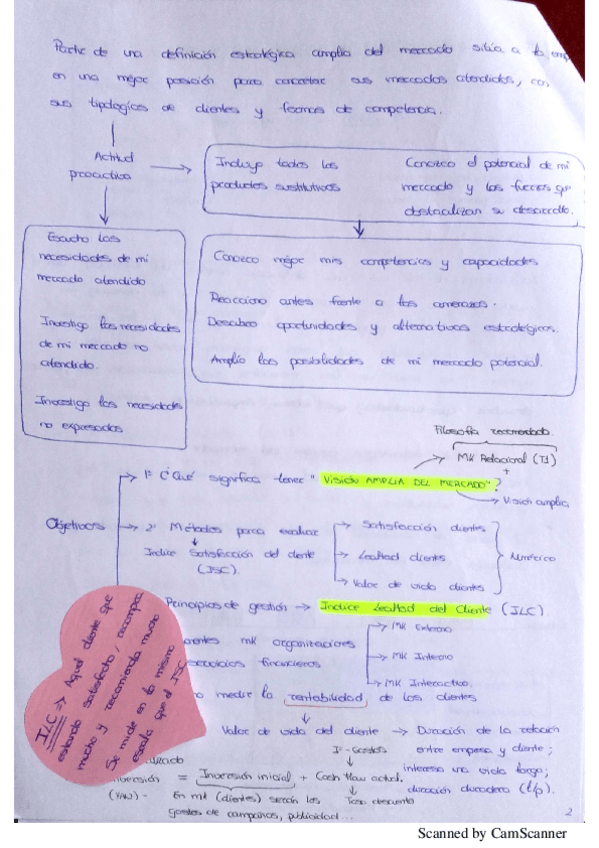 Partir de una definición estratégica amplia del mercado sitúa a la emp
en una mejor posición para conocer sus mercados atendidos, con
sus tipologías de clientes y formas de competencia.
Actitud
proactiva
Incluyo todos los
productos sustitutivos
Conozco el potencial de mi
mercado y las fuerzas que
obstaculizan su desarrollo.
Escucho las
necesidades de mi
mercado atendido
Investigo las necesidades
de mi mercado no
atendido.
Investigo las necesidades
no expresadas
Conozco mejor mis competencias y capacidades
Reacciono antes frente a las amenazas.
Descubro oportunidades y alternativas estratégicas.
Amplío las posibilidades de mi mercado potencial.
Filosofía recomendada
MK Relacional (T1)
+
Visión amplia
Objetivos
1º ¿Qué significa tener "VISIÓN AMPLIA DEL MERCADO"?
2º Métodos para evaluar
Indice Satisfacción del cliente
(ISC).
Satisfacción clientes
Lealtad clientes
Valor de vida clientes
Numérico
Principios de gestión → Indice Lealtad del Cliente (ILC).
rentes mk organizaciones
servicios financieros
MK Externo
MK Interno
MK Interactivo.
o medir la rentabilidad de los clientes
Valor de vida del cliente → Duración de la relación
entre empresa y cliente;
interesa una vida larga;
duración duradera (l/p).
I - Gastos
alizado
inversión = Inversión inicial + Cash flow actul.
(VAN) -
En mk (clientes) serán los
gastos de campañas, publicidad...
Tasa descuento
ILC → Aquel cliente que
estando satisfecho / recompra
mucho y recomienda mucho
Se mide en la misma
escala que el ISC
2
Scanned by CamScanner